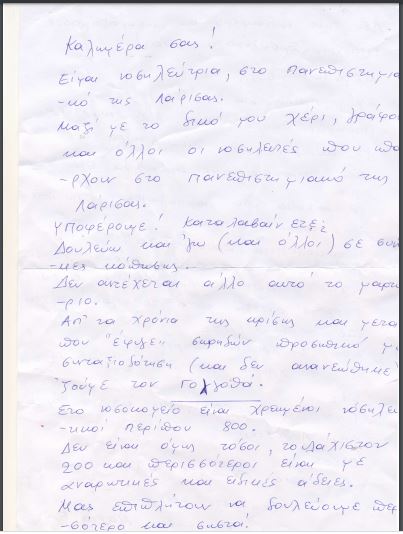 Καλημέρα σας!
Είμαι νοσηλεύτρια, στο πανεπιστημια
-κό της Λάρισας.
Μαζί με το δικό μου χέρι, γράφου
και άλλοι οι νοσηλευτές που υπα
-ρχουν στο πανεπιστημιακό της
Λάρισας.
Υποφέρουμε! Καταλαβαίνετε;
Δουλεύω και εγώ (και άλλοι) σε συν
-κες κόλασης.
Δεν αντέχεται άλλο αυτό το μαρτυ
-ριο.
Απ' τα χρόνια της κρίσης και μετα
που "έφυγε" σωρηδών προσωπικό μ
συνταξιοδότηση (και δεν ανανεώθηκε
ζούμε τον Γολγοθά.
Στο νοσοκομείο είναι χρεωμένοι νοσηλευ
-τικοί περίπου 800.
Δεν είναι όμως τόσοι, τουλάχιστον
200 και περισσότεροι είναι με
αναρωτικές και ειδικές άδειες.
Μας επιπλήτουν να δουλεύουμε περ
-σότερο και σωστά.